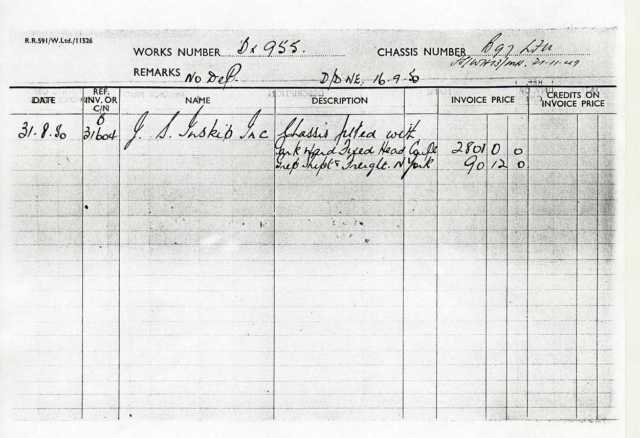 R.R.591/W.Ltd./11526
WORKS NUMBER Dx 955. CHASSIS NUMBER B97 LFU
21-11-49
REMARKS No Dep. D/D NE, 16-9-50
DATE REF. INV. OR C/N NAME DESCRIPTION INVOICE PRICE CREDITS ON INVOICE PRICE
31-8-50 B 31604 J. S. Inskip Inc Chassis fitted with
Park Ward Fixed Head Coupe 2801 0 0
Freight N York 90 12 0